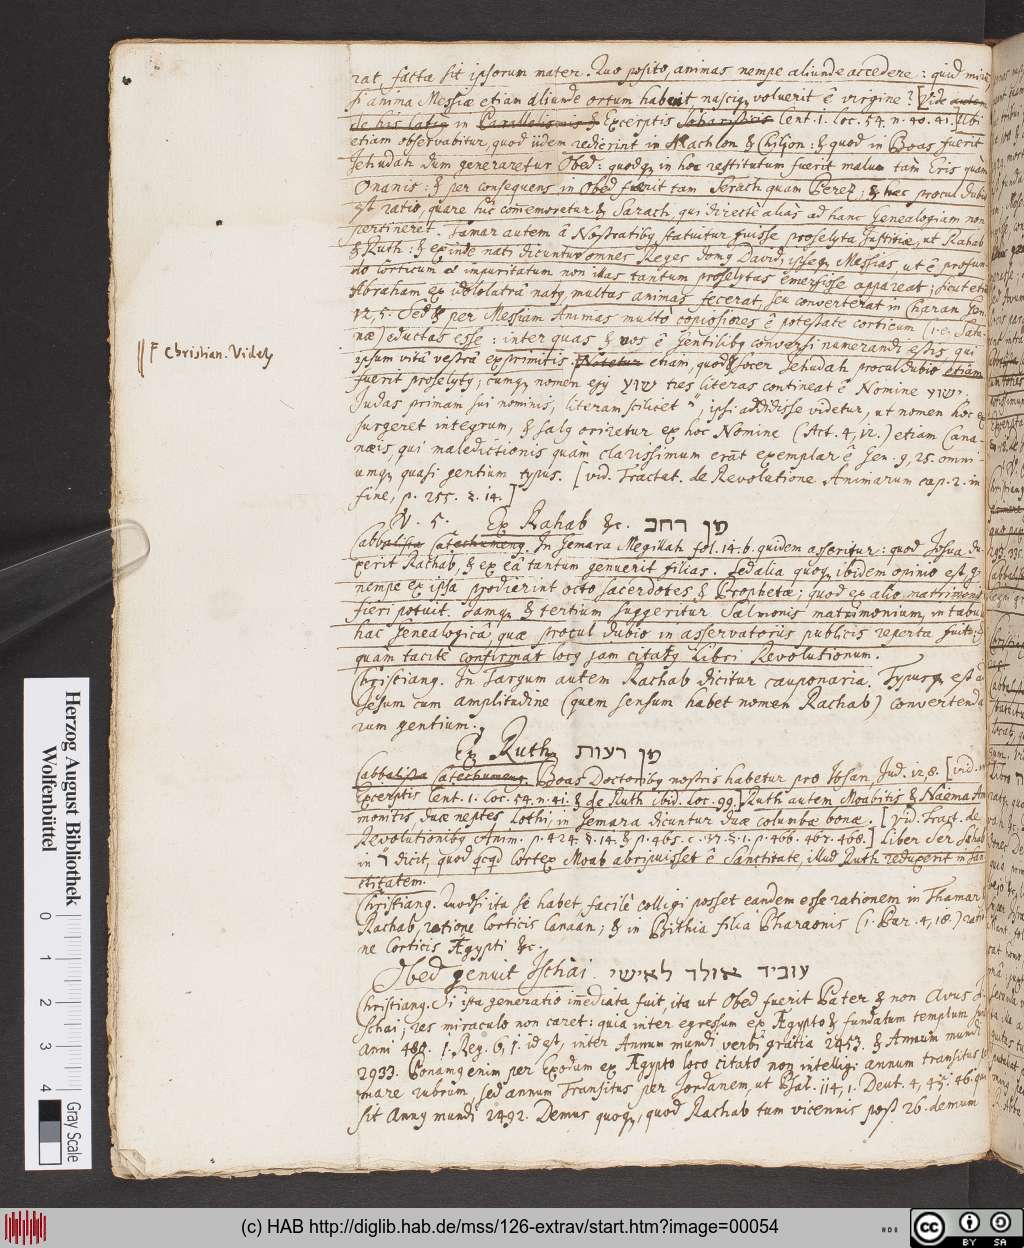 rat, facta sit ipsorum mater. Quo posito, animas nempe aliunde accedere: quid mirum
si anima Messiæ etiam aliunde ortum habens, nasci voluerit è virgine? [vid. autem
de his latiq in Parallelismis & Excerptis Soharisticis Cent. 1. loc. 54. n. 40. 41.] Ubi
etiam observabitur, quod iidem redierint in Machlon & Chiljon: & quod in Boas fuerit
Jehudah dum generaretur Obed: quodq, in hoc restitutum fuerit malum tam Eris quàm
Onanis: & per consequens in Obed fuerit tam Serach quam Perez; & hæc procul dubio
est ratio, quare hîc commemoretur & Sarach, qui directè aliàs ad hanc Genealogiam non
pertineret. Tamar autem à Nostratibq statuitur fuisse proselyta Justitiæ, ut Rahab
& Ruth: & exinde nati dicuntur omnes Reges domq David; ipseq, Messias, ut è profun
do corticum & impuritatum non illas tantum proselytas emersisse appareat; sicut etiam
Abraham ex idololatrâ natq, multas animas fecerat, seu converterat in Charan Gen.
12,5. Sed & per Messiam Animas multò copiosiores è potestate corticum (i.e. Sata-
næ) eductas esse: inter quas & vos è Gentilibq conversi numerandi estis, qui
|| F Christian. Videtq
ipsum vitâ vestrâ exprimitis. Notetur etiam, quod & socer Jehudah procul dubio etiam
fuerit proselytq; cumq, nomen ejq שוע tres literas contineat è Nomine ישוע.
Judas primam sui nominis, literam scilicet י, ipsi addidisse videtur, ut nomen hoc ex
surgeret integrum, & salq oriretur ex hoc Nomine (Act. 4,12.) etiam Cana-
næis, qui maledictionis quàm clarissimum erāt exemplar è Gen. 9,25. omni
umq, quasi gentium typus. [vid. Tractat. de Revolutione Animarum cap. 2. in
fine, p. 255. §. 14.]
V. 5. Ex Rahab &c. מן רחב
Cabbalista Catechumenq. In Gemara Megillah fol. 14. b. quidem asseritur: quod Josua du-
xerit Rachab, & ex eâ tantum genuerit filias. Sed alia quoq, ibidem opinio est,
nempe ex ipsa prodiârint octo sacerdotes & Prophetæ; quod ex alio matrimonio
fieri potuit. Jamq, & tertium suggeritur Salmonis matrimonium, in tabu
hac Genealogicâ, quæ procul dubio in asservatoriis publicis reperta fuit:
quàm tacitè confirmat locq jam citatq Libri Revolutionum.
Christianq. In Targum autem Rachab dicitur cauponaria. Typusq, est à
Jesum cum amplitudine (quem sensum habet nomen Rachab) convertenda
rum gentium.
Ex Ruth מן רעות
Cabbalista Catechumenq. Boas Doctoribq nostris habetur pro Ibsan, Jud. 12,8. [vid. in
Excerptis Cent. 1. loc. 54. n. 41. & de Ruth ibid. loc. 99.] Ruth autem Moabitis & Naema Am
monitis, duæ neptes Lothi, in Gemara dicuntur duæ columbæ bonæ. [vid. Tract. de
Revolutionibq Anim. p. 424. §. 14. & p. 465. c. 37. §. 1. p. 466. 467. 468.] Liber Ser Sahab
in ר dicit, quod qcqd Cortex Moab abripuisset è Sanctitate, illud Ruth reduxerit in San
ctitatem.
Christianq. Quodsi ita se habet, facilè colligi posset eandem esse rationem in Thamar
Rachab, ratione Corticis Canaan; & in Bithia filia Pharaonis (1. Par. 4,18.) ratio
ne Corticis Ægypti &c.
Obed genuit Jschai. עוביד אולד לאישי
Christianq. Si ista generatio immediata fuit, ita ut Obed fuerit Pater & non Avus
Jschai; res miraculo non caret: quia inter egressum ex Ægypto & fundatum templum
anni 480. 1. Reg. 6,1. id est, inter Annum mundi verbi gratia 2453. & Annum mundi
2933. Ponamq enim per Exodum ex Ægypto loco citato non intelligi annum transitus
mare rubrum, sed annum Transitus per Jordanem, ut Psal. 114,1. Deut. 4, 45. 46. qui
sit annq mundi 2492. Demus quoq, quod Rachab tum vicennis post 26. demum
Herzog August Bibliothek
Wolfenbüttel
0 1 2 3 4
Gray Scale
(c) HAB http://diglib.hab.de/mss/126-extrav/start.htm?image=00054
HAB
cc BY SA